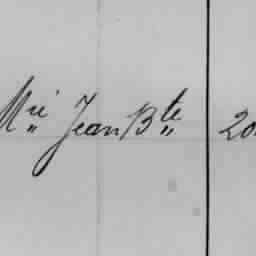 Mie Jean Bte 20